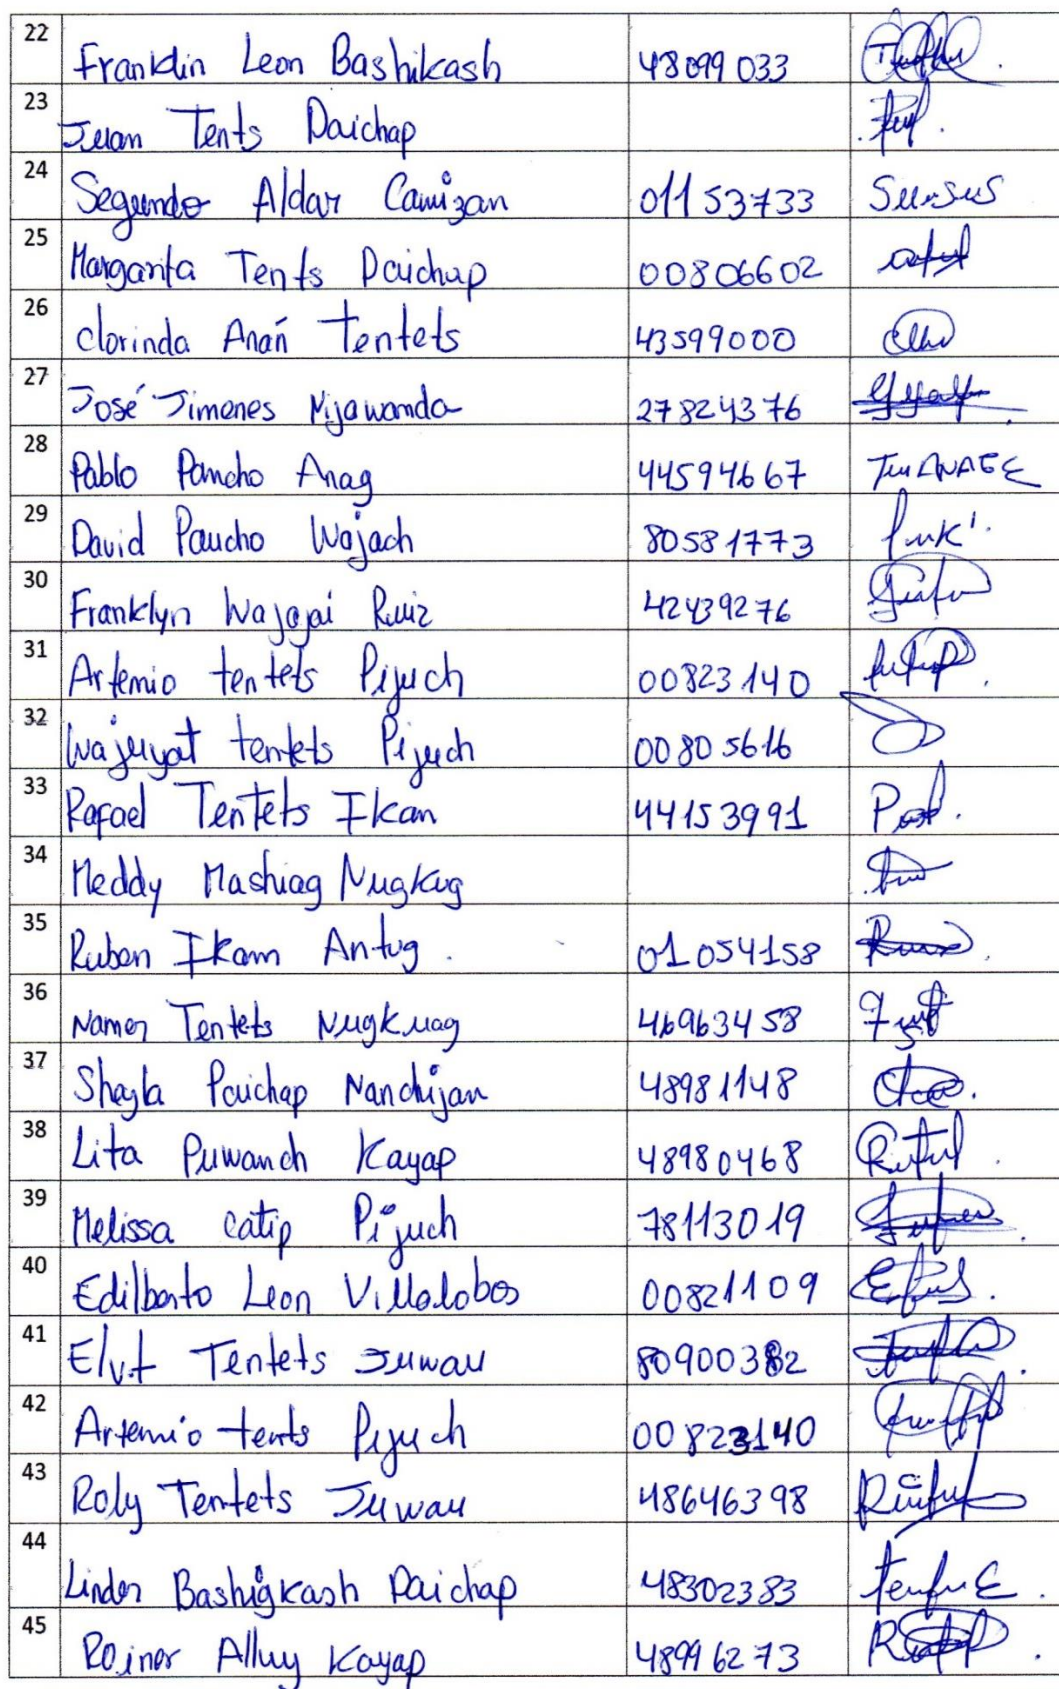 22 Franklin Leon Bashikash 48099033
23 Juan Tents Daichap
24 Segundo Aldar Camizan 01153733
25 Margarita Tents Daichap 00806602
26 Clorinda Anañ Tentets 43599000
27 José Jimenes Mijawanda 27824376
28 Pablo Pancho Anag 44594667
29 David Paucho Wajach 80581773
30 Franklyn Wajajai Ruiz 42439276
31 Artemio tentets Pijuch 00823140
32 Wajuyat tentets Pijuch 00805616
33 Rafael Tentets Ikan 44153991
34 Meddy Mashiag Nugkug
35 Ruben Ikam Antug. 01054158
36 Namer Tentets Nugkuag 46963458
37 Sheyla Paichap Nanchijan 48981148
38 Lita Puwanch Kayap 48980468
39 Melissa Catip Pijuch 78113019
40 Edilberto Leon Villalobos 00821109
41 Elvit Tentets Juwau 80900382
42 Artemio tents Pijuch 00823140
43 Roly Tentets Juwau 48646398
44 Linder Bashigkash Paichap 48302383
45 Roiner Alluy Kayap 48996273